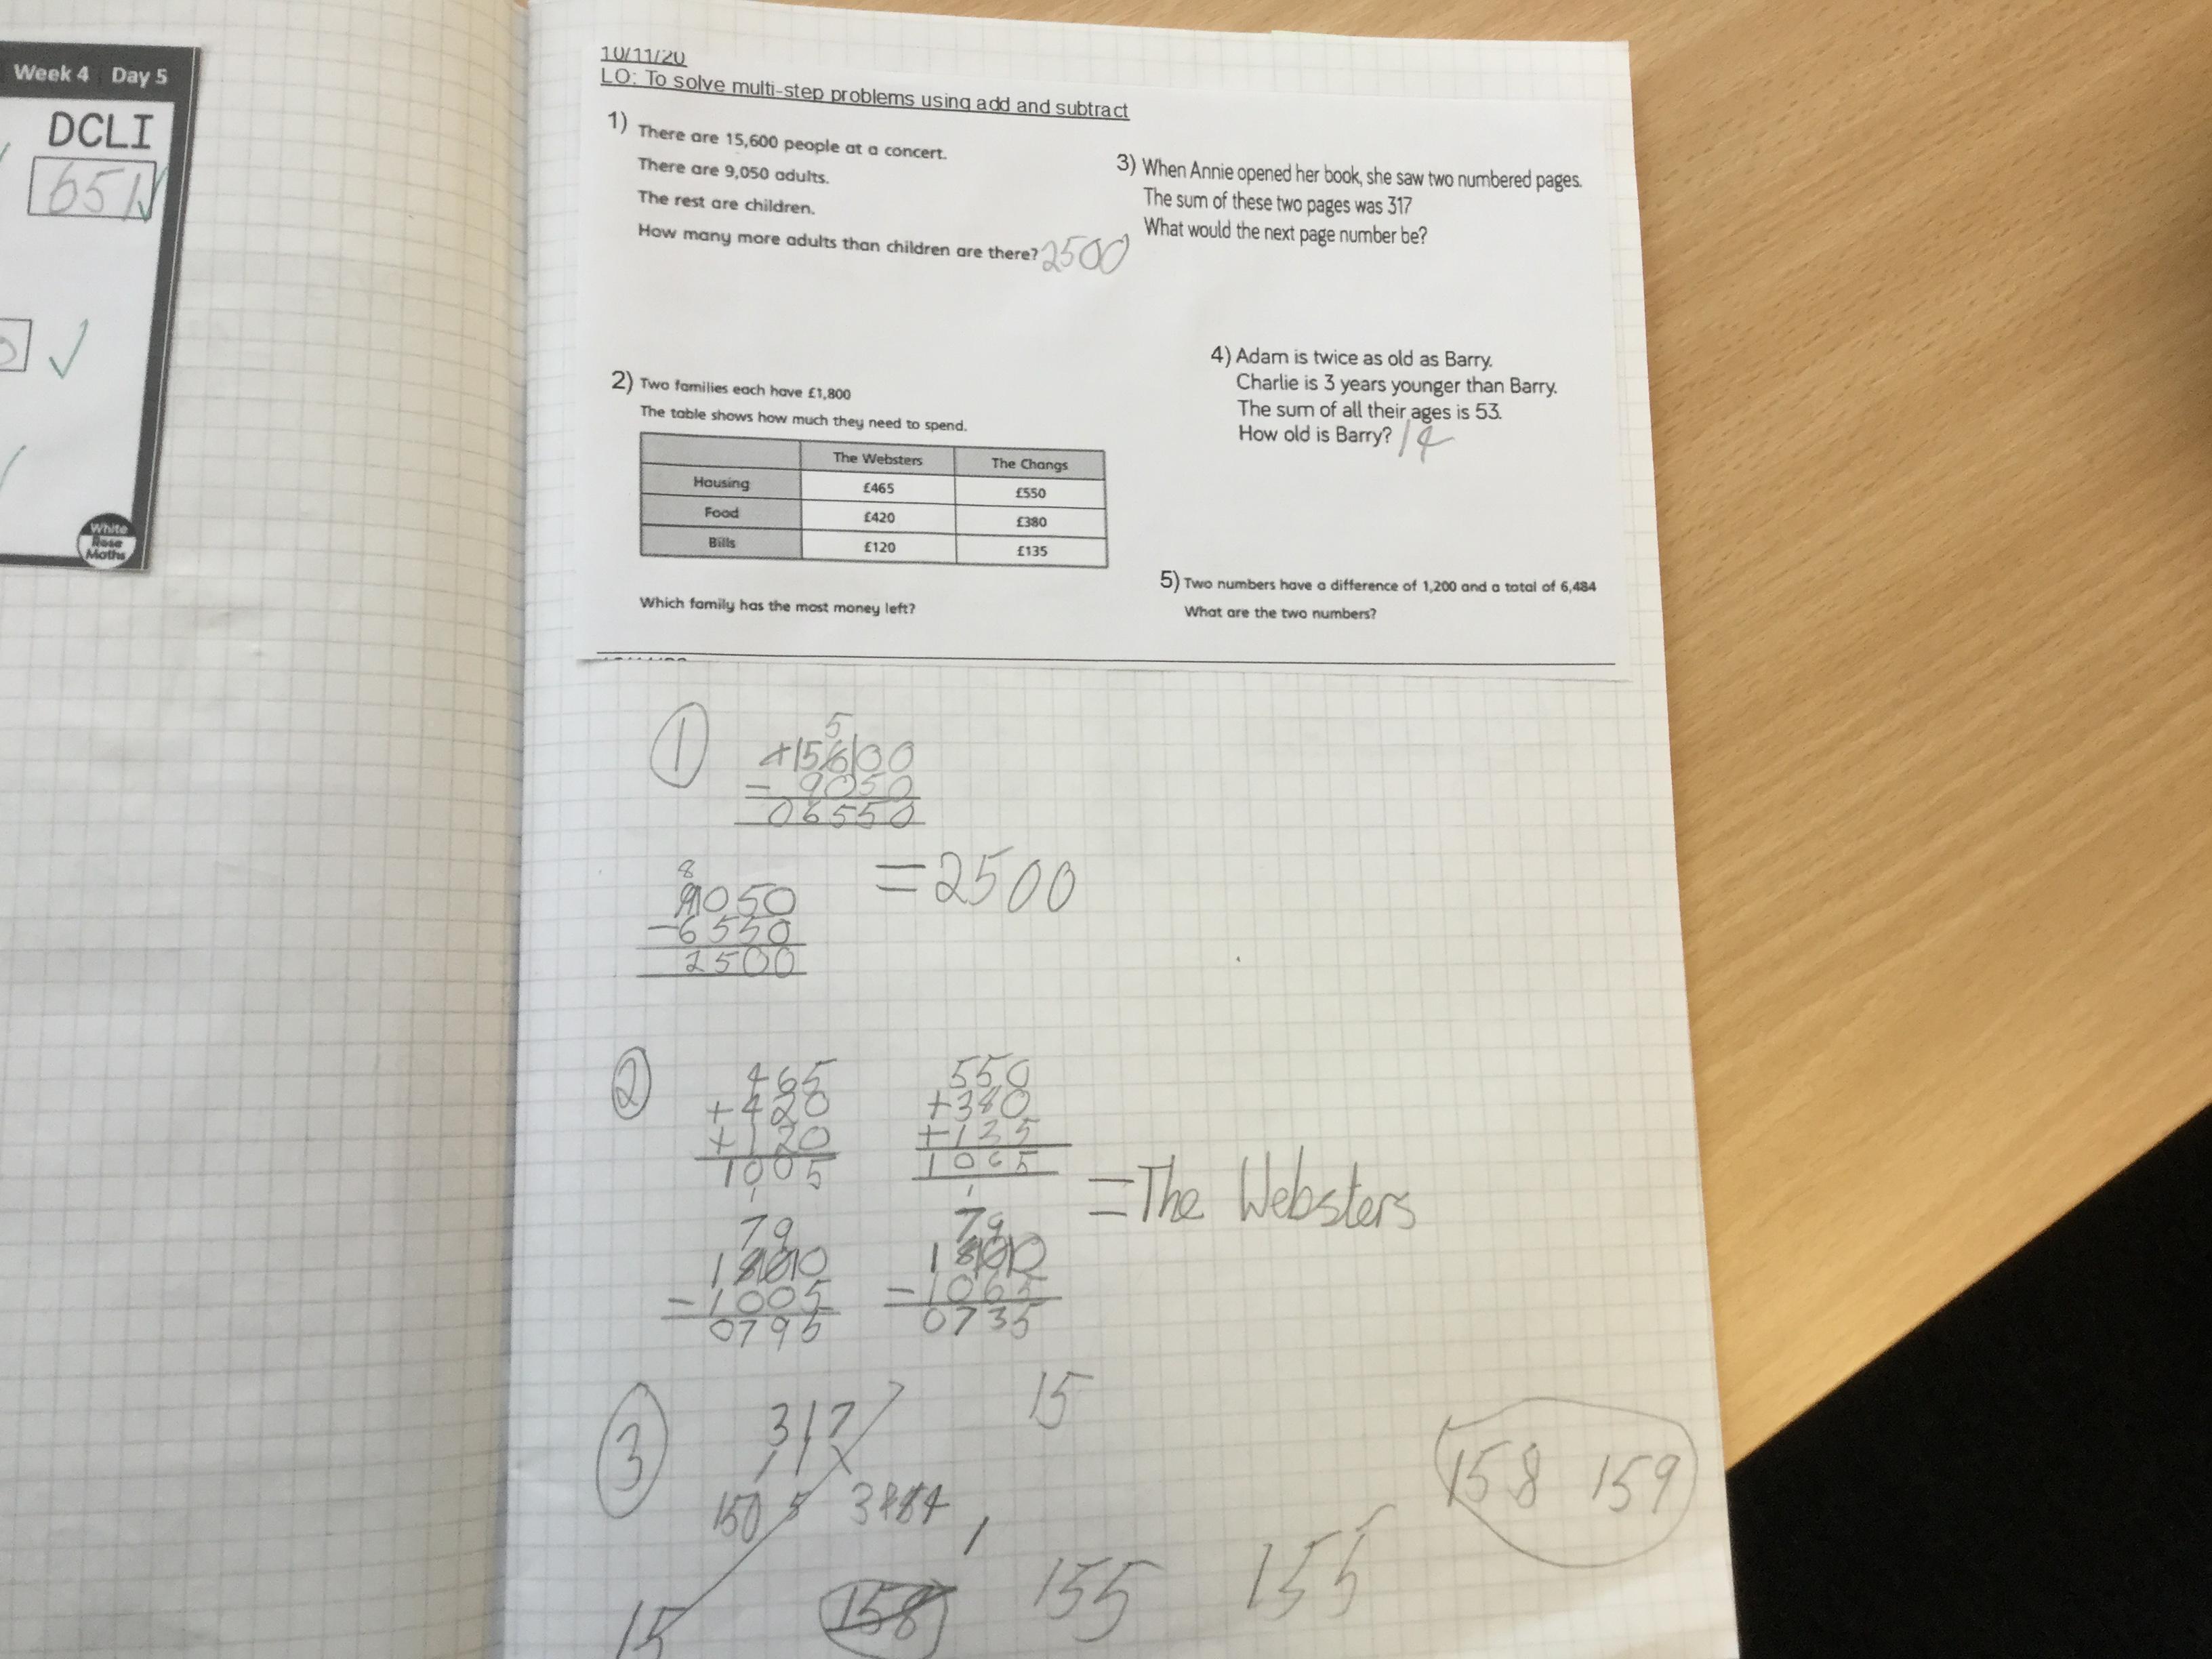 Week 4 Day 5
DCLI
651
White
Rose
Maths
10/11/20
LO: To solve multi-step problems using add and subtract
1) There are 15,600 people at a concert.
There are 9,050 adults.
The rest are children.
How many more adults than children are there? 2500
2) Two families each have £1,800
The table shows how much they need to spend.
The Websters The Changs
Housing £465 £550
Food £420 £380
Bills £120 £135
Which family has the most money left?
3) When Annie opened her book, she saw two numbered pages.
The sum of these two pages was 317
What would the next page number be?
4) Adam is twice as old as Barry.
Charlie is 3 years younger than Barry.
The sum of all their ages is 53.
How old is Barry? 14
5) Two numbers have a difference of 1,200 and a total of 6,484
What are the two numbers?
1
5
15600
- 9050
06550
8
9050
- 6550
2500
= 2500
2
465
+ 420
+ 120
1005
1
550
+ 380
+ 135
1065
1
= The Websters
7 9
1800
- 1005
0795
7 9
1800
- 1065
0735
3
317
15
150 5
158 159
15
158
155
155